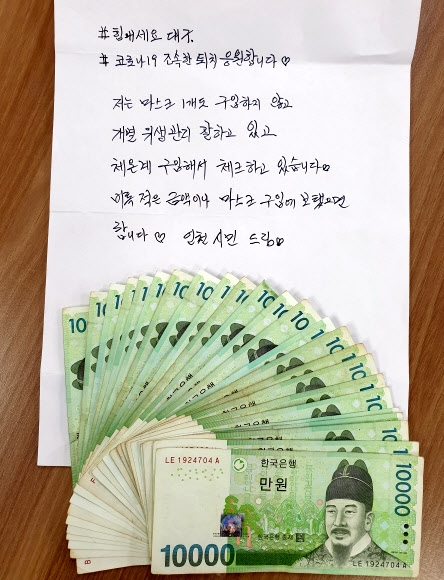 #힘내세요 대구
# 코로나19 조속한 퇴치 응원합니다♡
저는 마스크 1개도 구입하지 않고
개별 위생관리 잘하고 있고
체온계 구입해서 체크하고 있습니다.
비록 적은 금액이나 마스크 구입에 보탰으면
합니다♡ 인천 시민 드림.
10 10 10 10 10 10 10
LE 1924704 A
한국은행
만원
10000
한국은행 총재
LE 1924704 A
10000